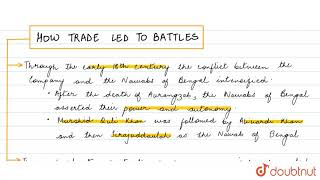 HOW TRADE LED TO BATTLES
Through the early 18th century the conflict between the
Company and the Nawabs of Bengal intensified.
• After the death of Aurangzeb, the Nawabs of Bengal
asserted their power and autonomy.
• Murshid Quli Khan was followed by Alivardi Khan
and then Sirajuddaulah as the Nawab of Bengal
doubtnut